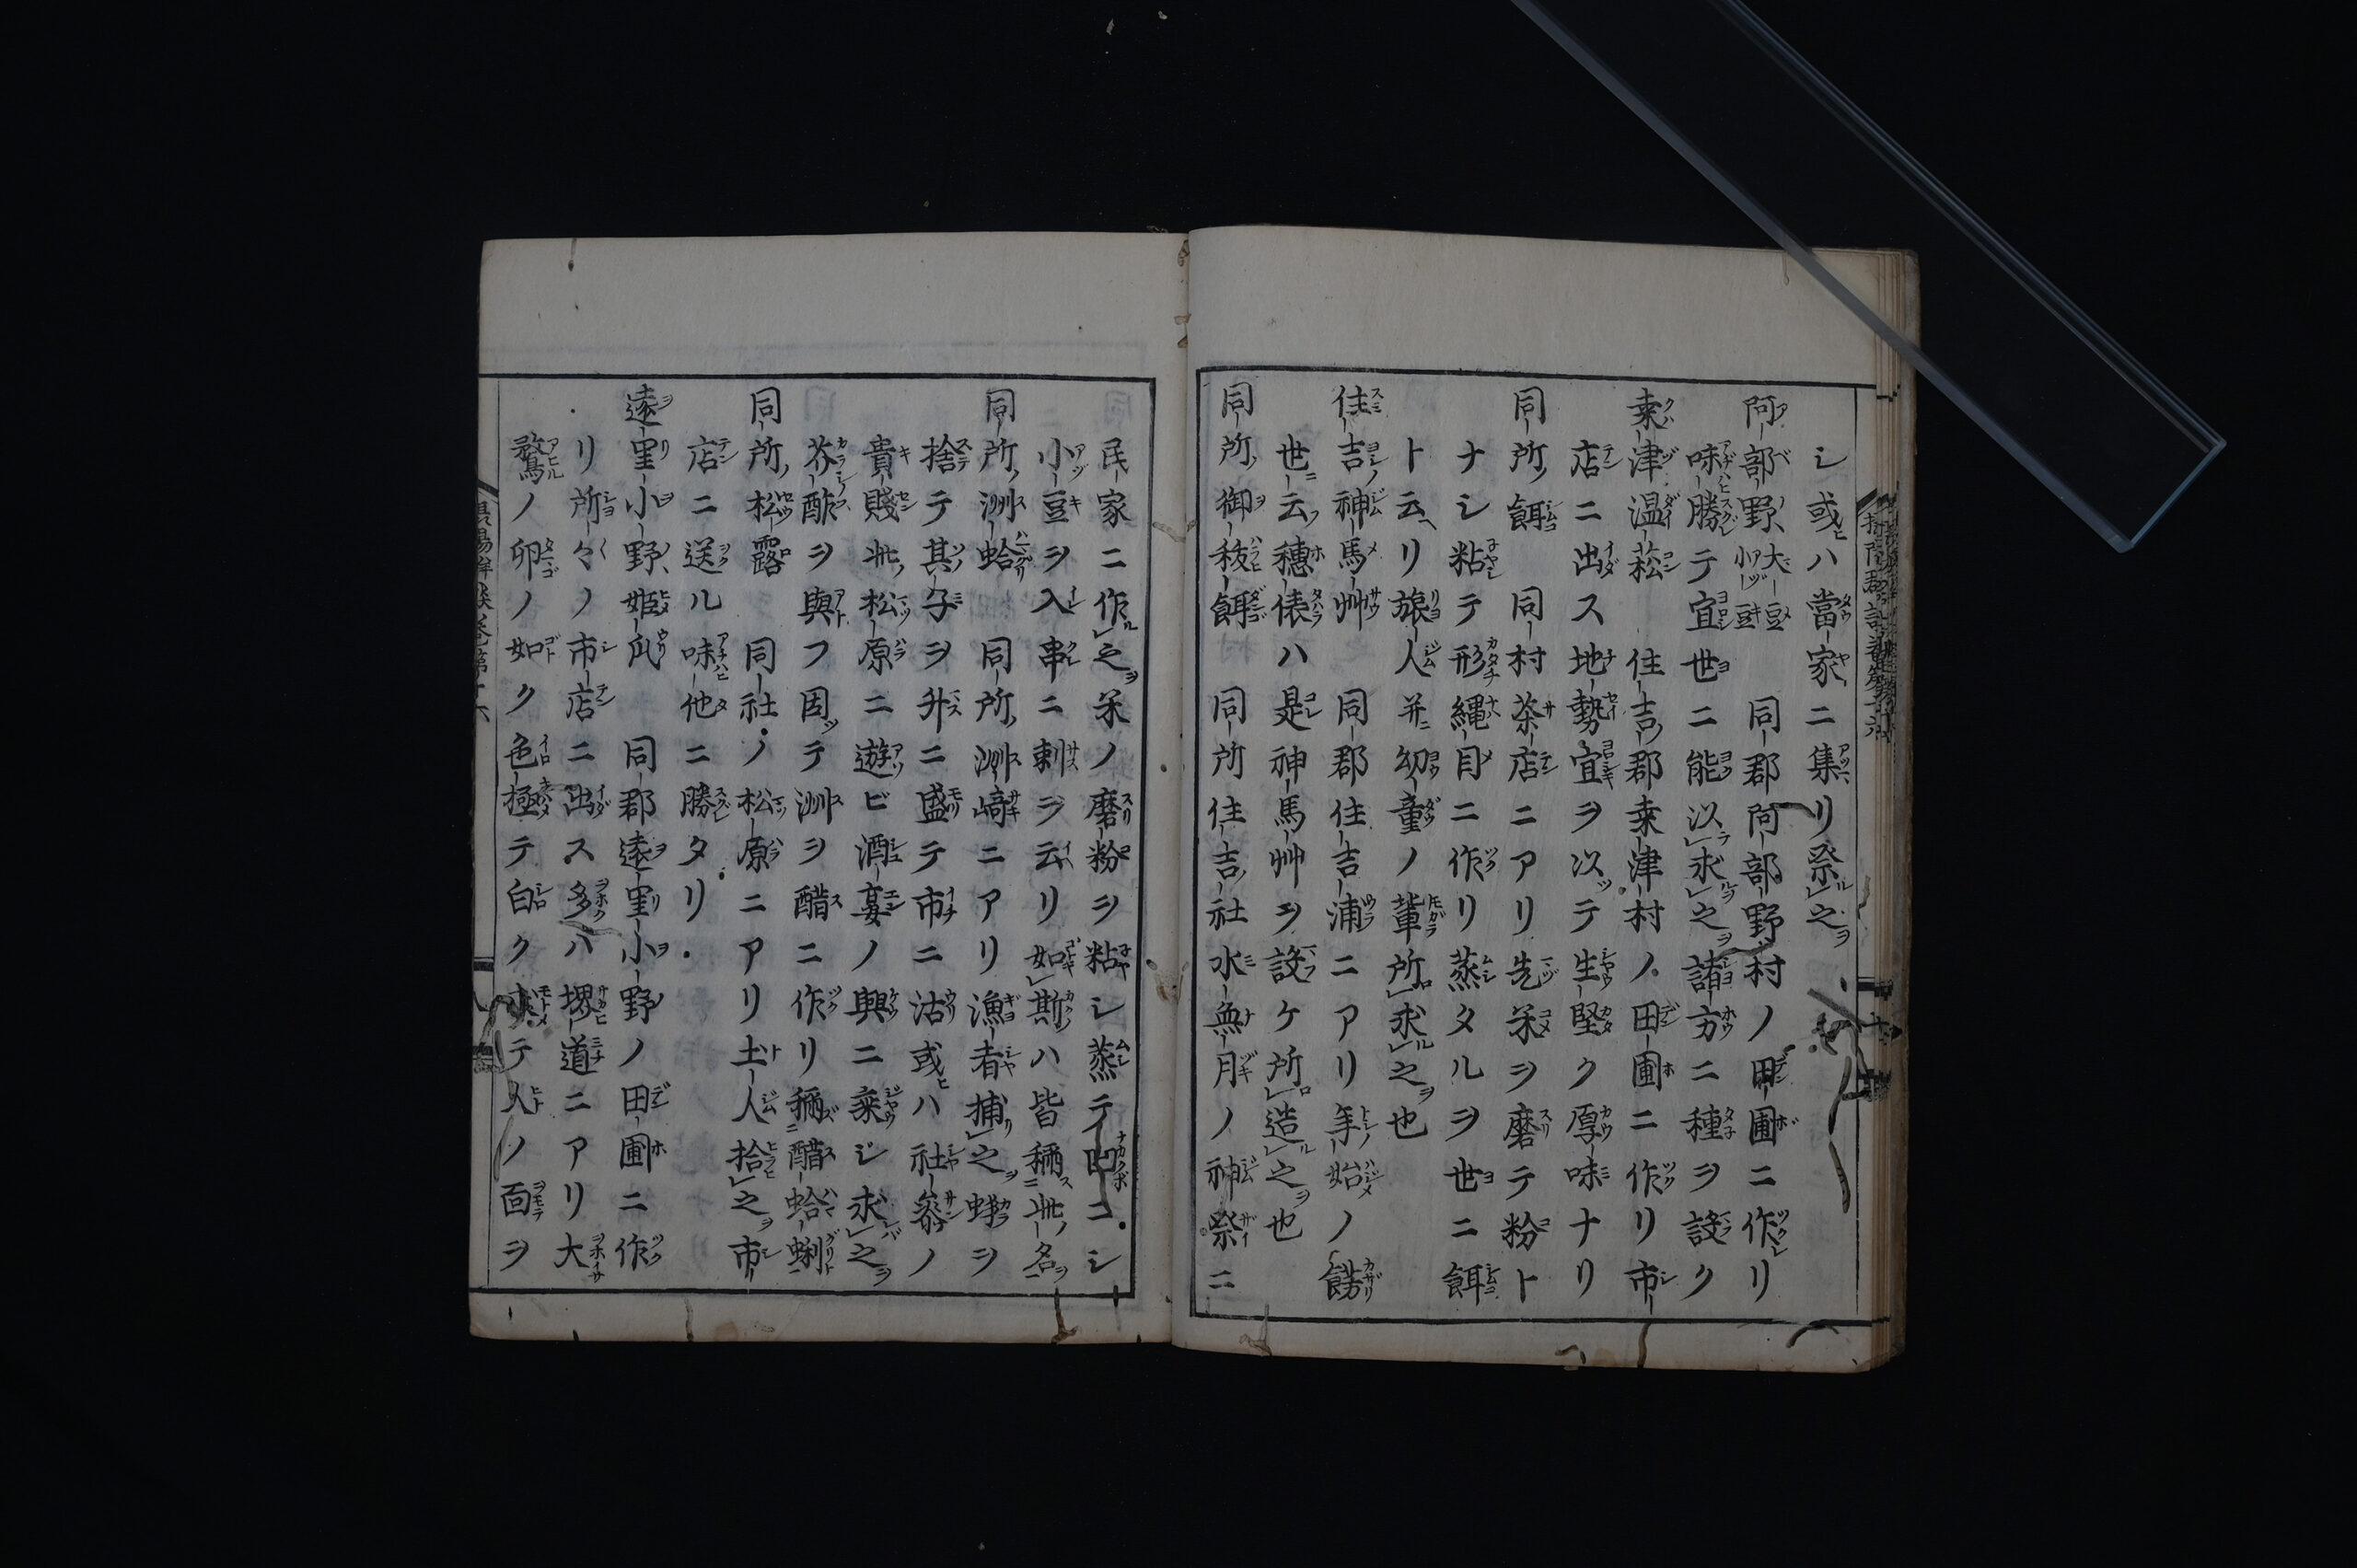 シ或ハ當家ニ集リ祭之
阿部野大豆小豆 同郡阿部野村ノ田圃ニ作リ
味勝テ宜世ニ能以求之諸方ニ種ヲ設ク
桒津温菘 住吉郡桒津村ノ田圃ニ作リ市
店ニ出ス地勢宜ヲ以テ生堅ク厚味ナリ
同所餌 同村茶店ニアリ先米ヲ磨テ粉ト
ナシ粘テ形縄目ニ作リ蒸タルヲ世ニ餌
ト云リ旅人并ニ幼童ノ輩所求之也
住吉神馬艸 同郡住吉浦ニアリ年始ノ餝
世云穗俵ハ是神馬艸ヲ設ケ所造之也
同所御秡餌 同所住吉社水無月ノ神祭ニ
民家ニ作之米ノ磨粉ヲ粘シ蒸テ凹ニシ
小豆ヲ入串ニ刺ヲ云リ如斯ハ皆稱此名
同所洲蛤 同所洲﨑ニアリ漁者捕之蜆ヲ
捨テ其子ヲ升ニ盛テ市ニ沽或ハ社叅ノ
貴賤此松原ニ遊ビ酒宴ノ興ニ乘ジ求之
芥酢ヲ與フ因テ洲ヲ醋ニ作リ稱醋蛤蜊
同所松露 同社ノ松原ニアリ土人拾之市
店ニ送ル味他ニ勝タリ
遠里小野姫瓜 同郡遠里小野ノ田圃ニ作
リ所々ノ市店ニ出ス多ハ堺道ニアリ大
鶩ノ卵ノ如ク色極テ白ク求テ人ノ面ヲ